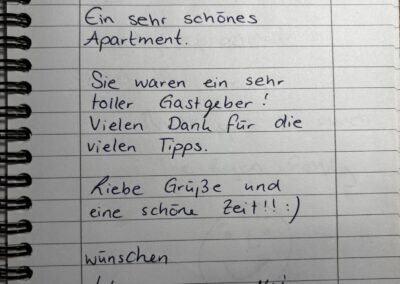 Ein sehr schönes
Apartment.
Sie waren ein sehr
toller Gastgeber!
Vielen Dank für die
vielen Tipps.
Liebe Grüße und
eine schöne Zeit!! :)
wünschen